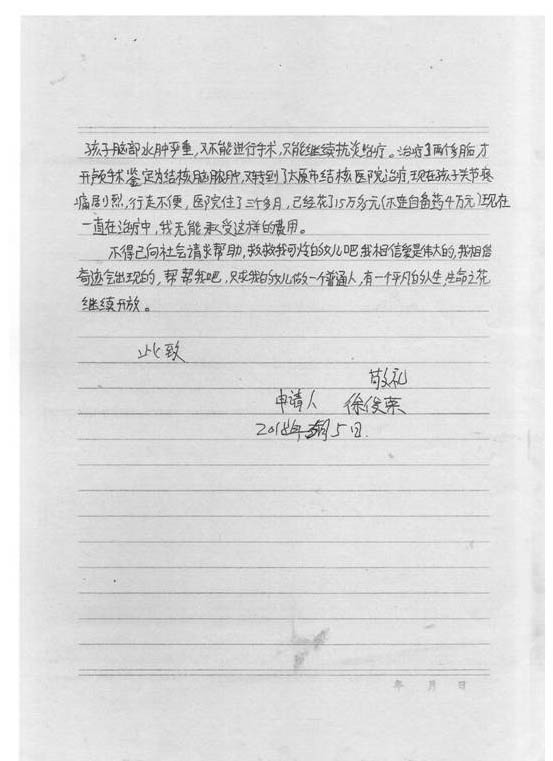 孩子脑部水肿严重,又不能进行手术,只能继续抗炎治疗。治疗了两个多月后,才
开颅手术鉴定为结核脑脓肿,又转到了太原市结核医院治疗,现在孩子关节疼
痛剧烈,行走不便,医院住了三个多月,已经花了15万多元(不连自备药4万元)现在
一直在治疗中,我无能承受这样的费用。
不得已向社会请求帮助,救救我可怜的女儿吧我相信爱是伟大的,我相信
奇迹会出现的,帮帮我吧,只求我的女儿做一个普通人,有一个平凡的人生,生命之花
继续开放。
此致
敬礼
申请人 徐俊荣
5日.
年 月 日